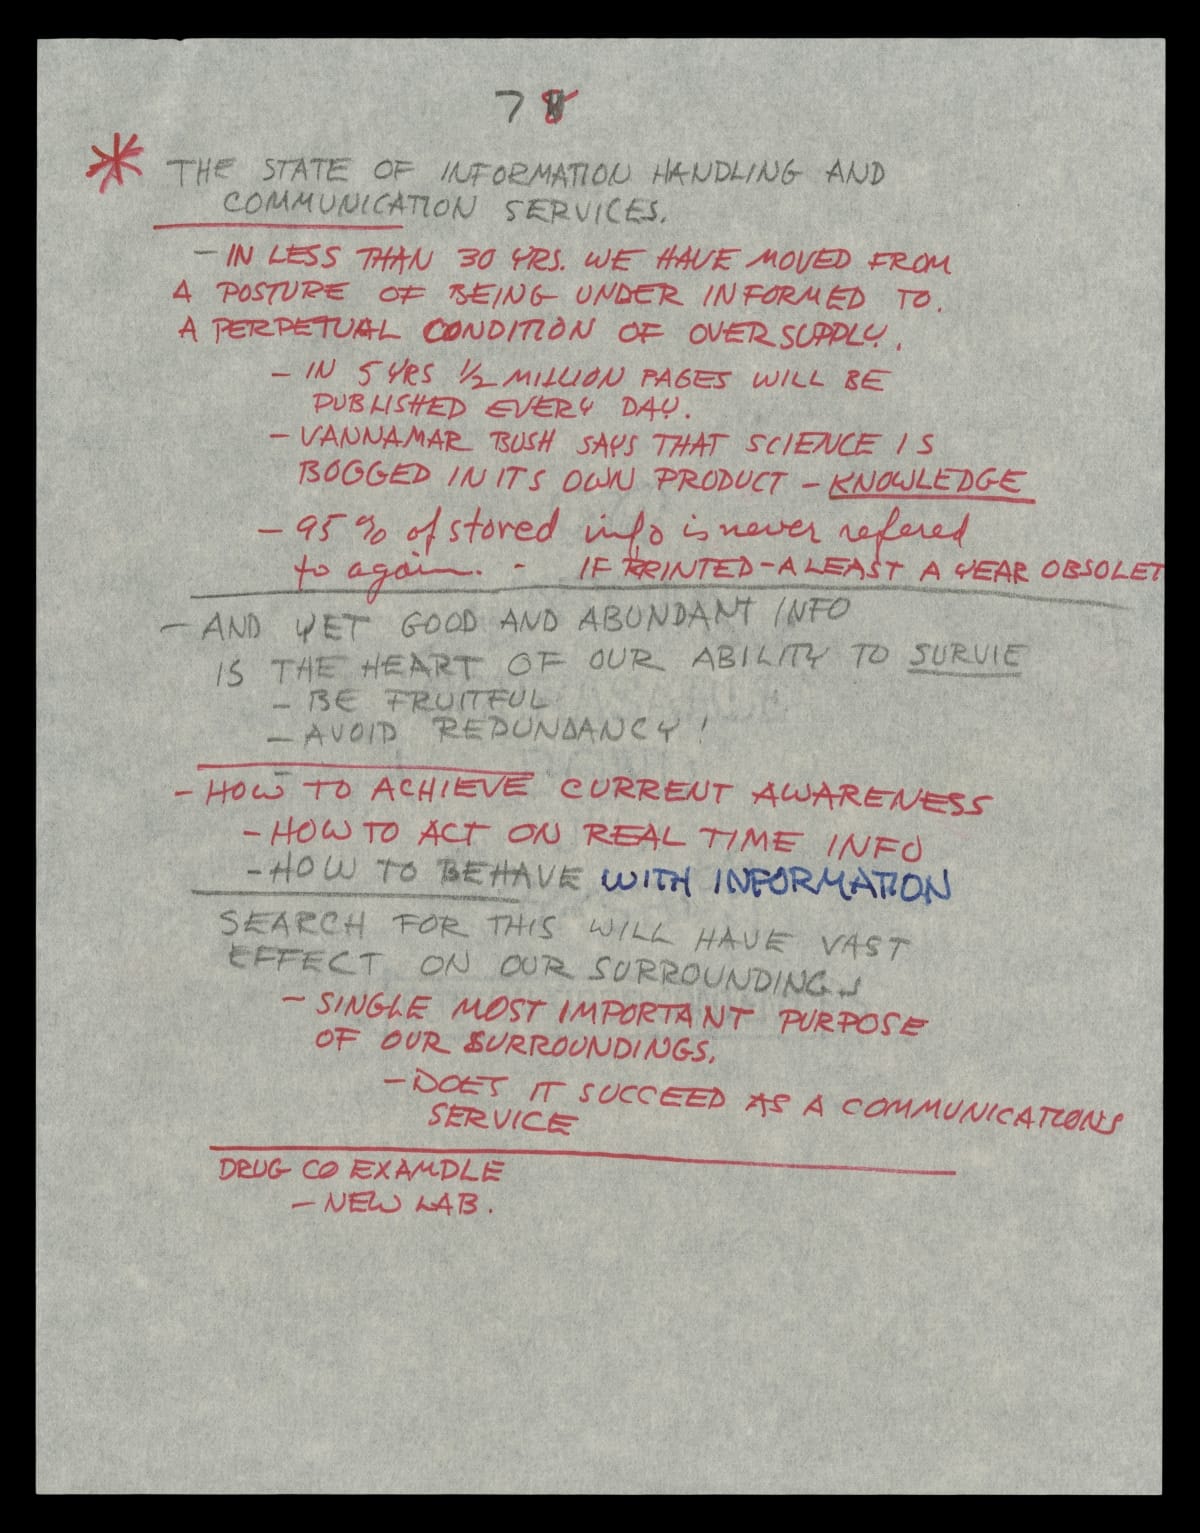 7
* THE STATE OF INFORMATION HANDLING AND
COMMUNICATION SERVICES.
- IN LESS THAN 30 YRS. WE HAVE MOVED FROM
A POSTURE OF BEING UNDER INFORMED TO.
A PERPETUAL CONDITION OF OVER SUPPLY.
- IN 5 YRS 1/2 MILLION PAGES WILL BE
PUBLISHED EVERY DAY.
- VANNAMAR BUSH SAYS THAT SCIENCE IS
BOGGED IN ITS OWN PRODUCT - KNOWLEDGE
- 95% of stored info is never refered
to again. - IF PRINTED - A LEAST A YEAR OBSOLET
- AND YET GOOD AND ABUNDANT INFO
IS THE HEART OF OUR ABILITY TO SURVIE
- BE FRUITFUL
- AVOID REDUNDANCY!
- HOW TO ACHIEVE CURRENT AWARENESS
- HOW TO ACT ON REAL TIME INFO
- HOW TO BEHAVE WITH INFORMATION
SEARCH FOR THIS WILL HAVE VAST
EFFECT ON OUR SURROUNDINGS
- SINGLE MOST IMPORTANT PURPOSE
OF OUR SURROUNDINGS.
- DOES IT SUCCEED AS A COMMUNICATIONS
SERVICE
DRUG CO EXAMPLE
- NEW LAB.